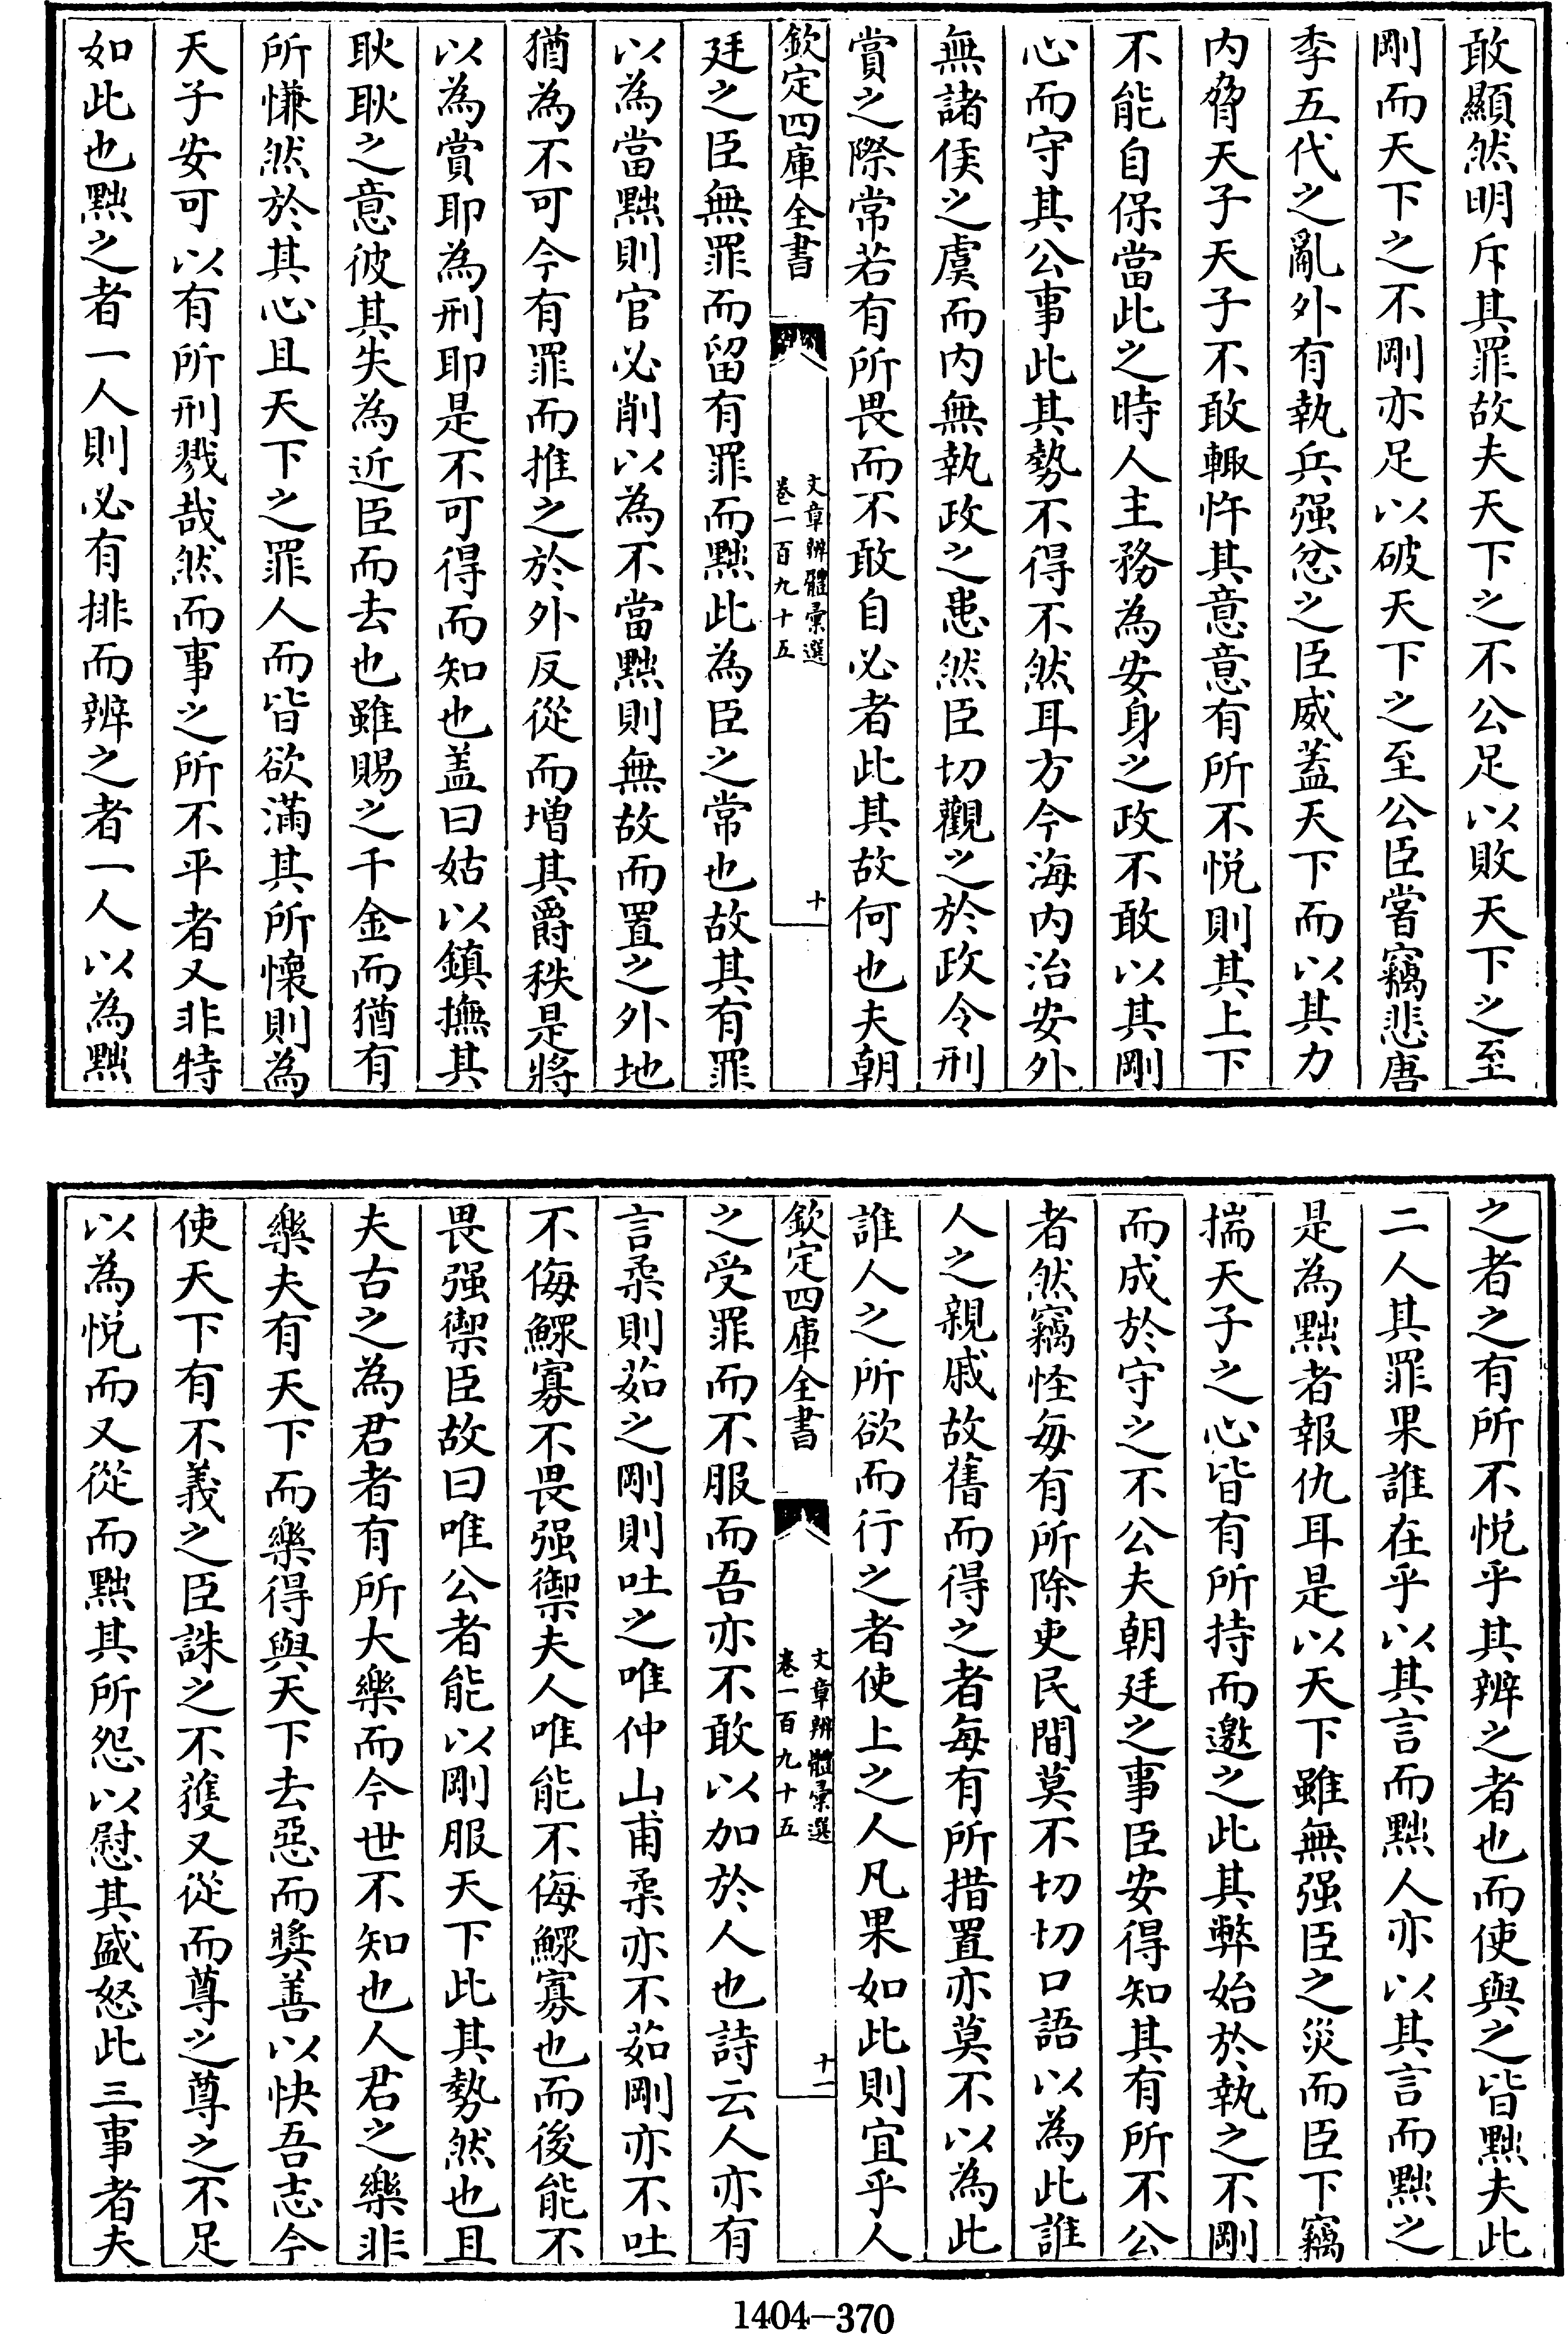 敢顯然明斥其罪故夫天下之不公足以敗天下之至
剛而天下之不剛亦足以破天下之至公臣嘗竊悲唐
季五代之亂外有執兵强忿之臣威蓋天下而以其力
内脅天子天子不敢輙忤其意意有所不悦則其上下
不能自保當此之時人主務為安身之政不敢以其剛
心而守其公事此其勢不得不然耳方今海内治安外
無諸侯之虞而内無執政之患然臣切觀之於政令刑
賞之際常若有所畏而不敢自必者此其故何也夫朝
欽定四庫全書
文章辨體彚選
卷一百九十五
十
廷之臣無罪而留有罪而黜此為臣之常也故其有罪
以為當黜則官必削以為不當黜則無故而置之外地
猶為不可今有罪而推之於外反從而増其爵秩是將
以為賞耶為刑耶是不可得而知也盖曰姑以鎮撫其
耿耿之意彼其失為近臣而去也雖賜之千金而猶有
所慊然於其心且天下之罪人而皆欲滿其所懷則為
天子安可以有所刑戮哉然而事之所不平者又非特
如此也黜之者一人則必有排而辨之者一人以為黜
之者之有所不悦乎其辨之者也而使與之皆黜夫此
二人其罪果誰在乎以其言而黜人亦以其言而黜之
是為黜者報仇耳是以天下雖無强臣之災而臣下竊
揣天子之心皆有所持而邀之此其弊始於執之不剛
而成於守之不公夫朝廷之事臣安得知其有所不公
者然竊怪每有所除吏民間莫不切切口語以為此誰
人之親戚故舊而得之者每有所措置亦莫不以為此
誰人之所欲而行之者使上之人凡果如此則宜乎人
欽定四庫全書
文章辨體彚選
卷一百九十五
十一
之受罪而不服而吾亦不敢以加於人也詩云人亦有
言柔則茹之剛則吐之唯仲山甫柔亦不茹剛亦不吐
不侮鰥寡不畏强禦夫人唯能不侮鰥寡也而後能不
畏强禦臣故曰唯公者能以剛服天下此其勢然也且
夫古之為君者有所大樂而今世不知也人君之樂非
樂夫有天下而樂得與天下去惡而奬善以快吾志今
使天下有不義之臣誅之不獲又從而尊之尊之不足
以為悦而又從而黜其所怨以慰其盛怒此三事者夫
1404—370